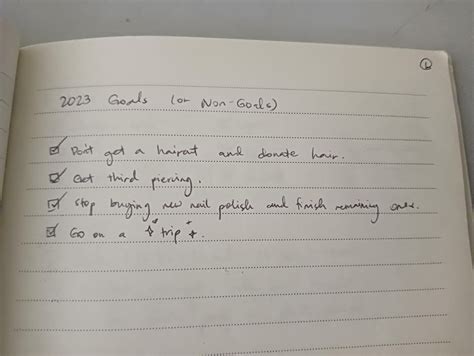 1
2023 Goals (or Non-Goals)
Don't get a haircut and donate hair.
Get third piercing.
Stop buying new nail polish and finish remaining ones.
Go on a trip.